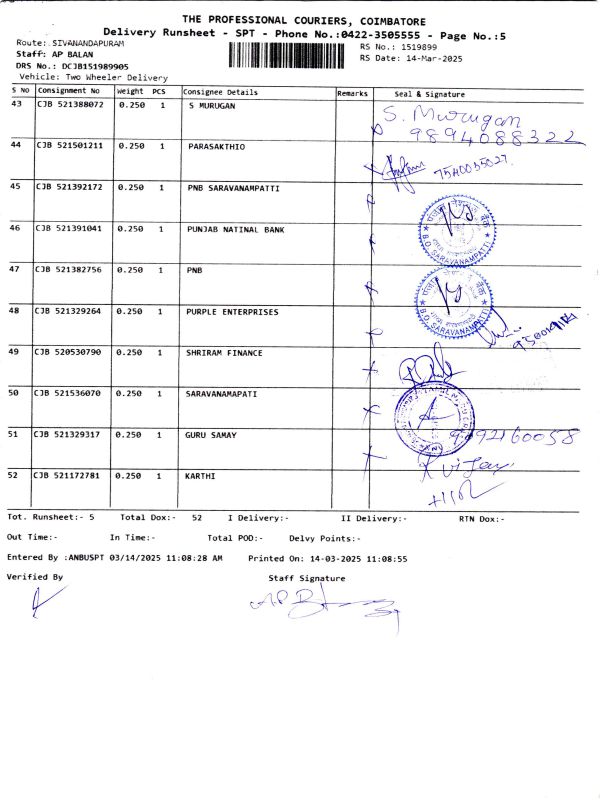 THE PROFESSIONAL COURIERS, COIMBATORE
Delivery Runsheet - SPT - Phone No.:0422-3505555 - Page No.:5
Route: SIVANANDAPURAM
Staff: AP BALAN
DRS No.: DCJB151989905
Vehicle: Two Wheeler Delivery
RS No.: 1519899
RS Date: 14-Mar-2025
S No Consignment No Weight PCS Consignee Details Remarks Seal & Signature
43 CJB 521388072 0.250 1 S MURUGAN
S. Murugan
9894088322
44 CJB 521501211 0.250 1 PARASAKTHIO
45 CJB 521392172 0.250 1 PNB SARAVANAMPATTI
B.O. SARAVANAMPATTI
46 CJB 521391041 0.250 1 PUNJAB NATINAL BANK
47 CJB 521382756 0.250 1 PNB
B.O. SARAVANAMPATTI
48 CJB 521329264 0.250 1 PURPLE ENTERPRISES
49 CJB 520530790 0.250 1 SHRIRAM FINANCE
50 CJB 521536070 0.250 1 SARAVANAMAPATI
51 CJB 521329317 0.250 1 GURU SAMAY
52 CJB 521172781 0.250 1 KARTHI
Tot. Runsheet:- 5 Total Dox:- 52 I Delivery:- II Delivery:- RTN Dox:-
Out Time:- In Time:- Total POD:- Delvy Points:-
Entered By :ANBUSPT 03/14/2025 11:08:28 AM Printed On: 14-03-2025 11:08:55
Verified By Staff Signature